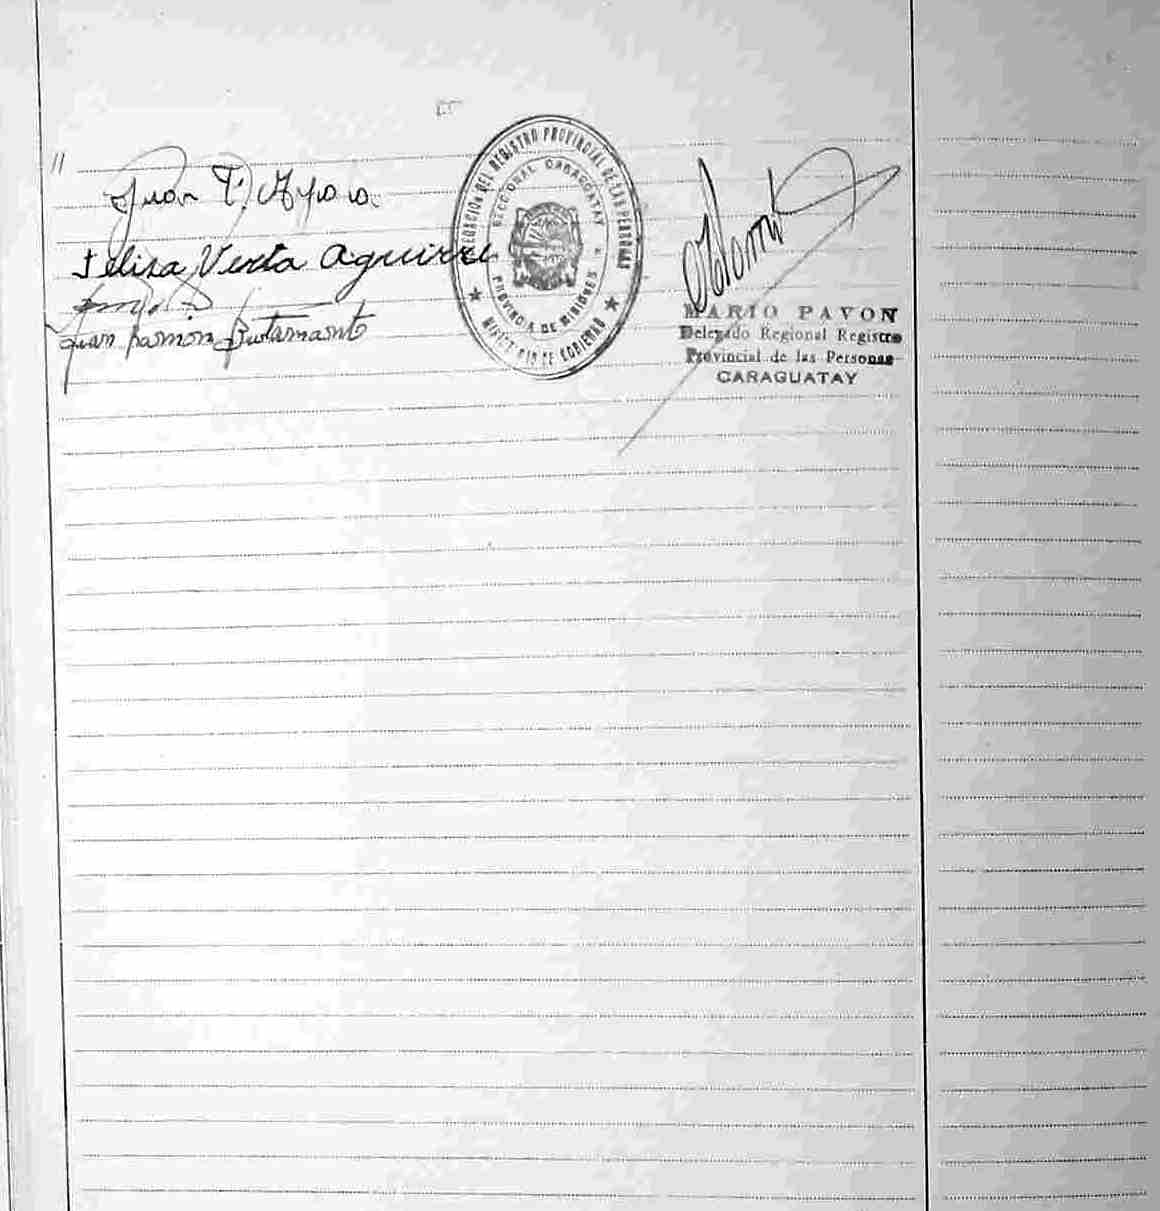 //
Juan P. Ayala
Feliza Verta Aguirre
Juan Ramón Bustamante
DELEGACION DEL REGISTRO PROVINCIAL DE LAS PERSONAS
SECCIONAL CARAGUATAY
PROVINCIA DE MISIONES
MINISTERIO DE GOBIERNO
MARIO PAVON
Delegado Regional Registro
Provincial de las Personas
CARAGUATAY